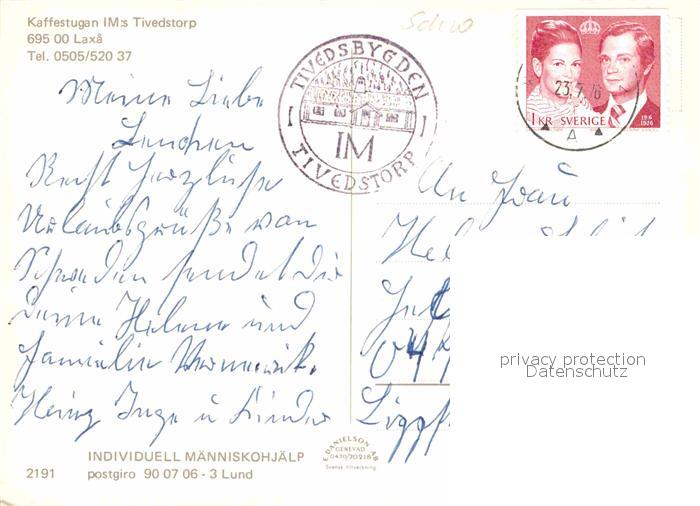 Kaffestugan IM:s Tivedstorp
695 00 Laxå
Tel. 0505/520 37
TIVEDSBYGDEN
IM
TIVEDSTORP
23.7.76
A
1 KR SVERIGE
19 6
1976
Meine Liebe
Lenchen
Recht herzliche
Urlaubsgrüße von
Schweden sendet dir
deine Helma und
Familie
Heinz Inge u Kinder
An Frau
Lippst
privacy protection
Datenschutz
INDIVIDUELL MÄNNISKOHJÄLP
2191 postgiro 90 07 06 - 3 Lund
E. DANIELSON AB
GENEVAD
0430/70218
Svensk tillverkning